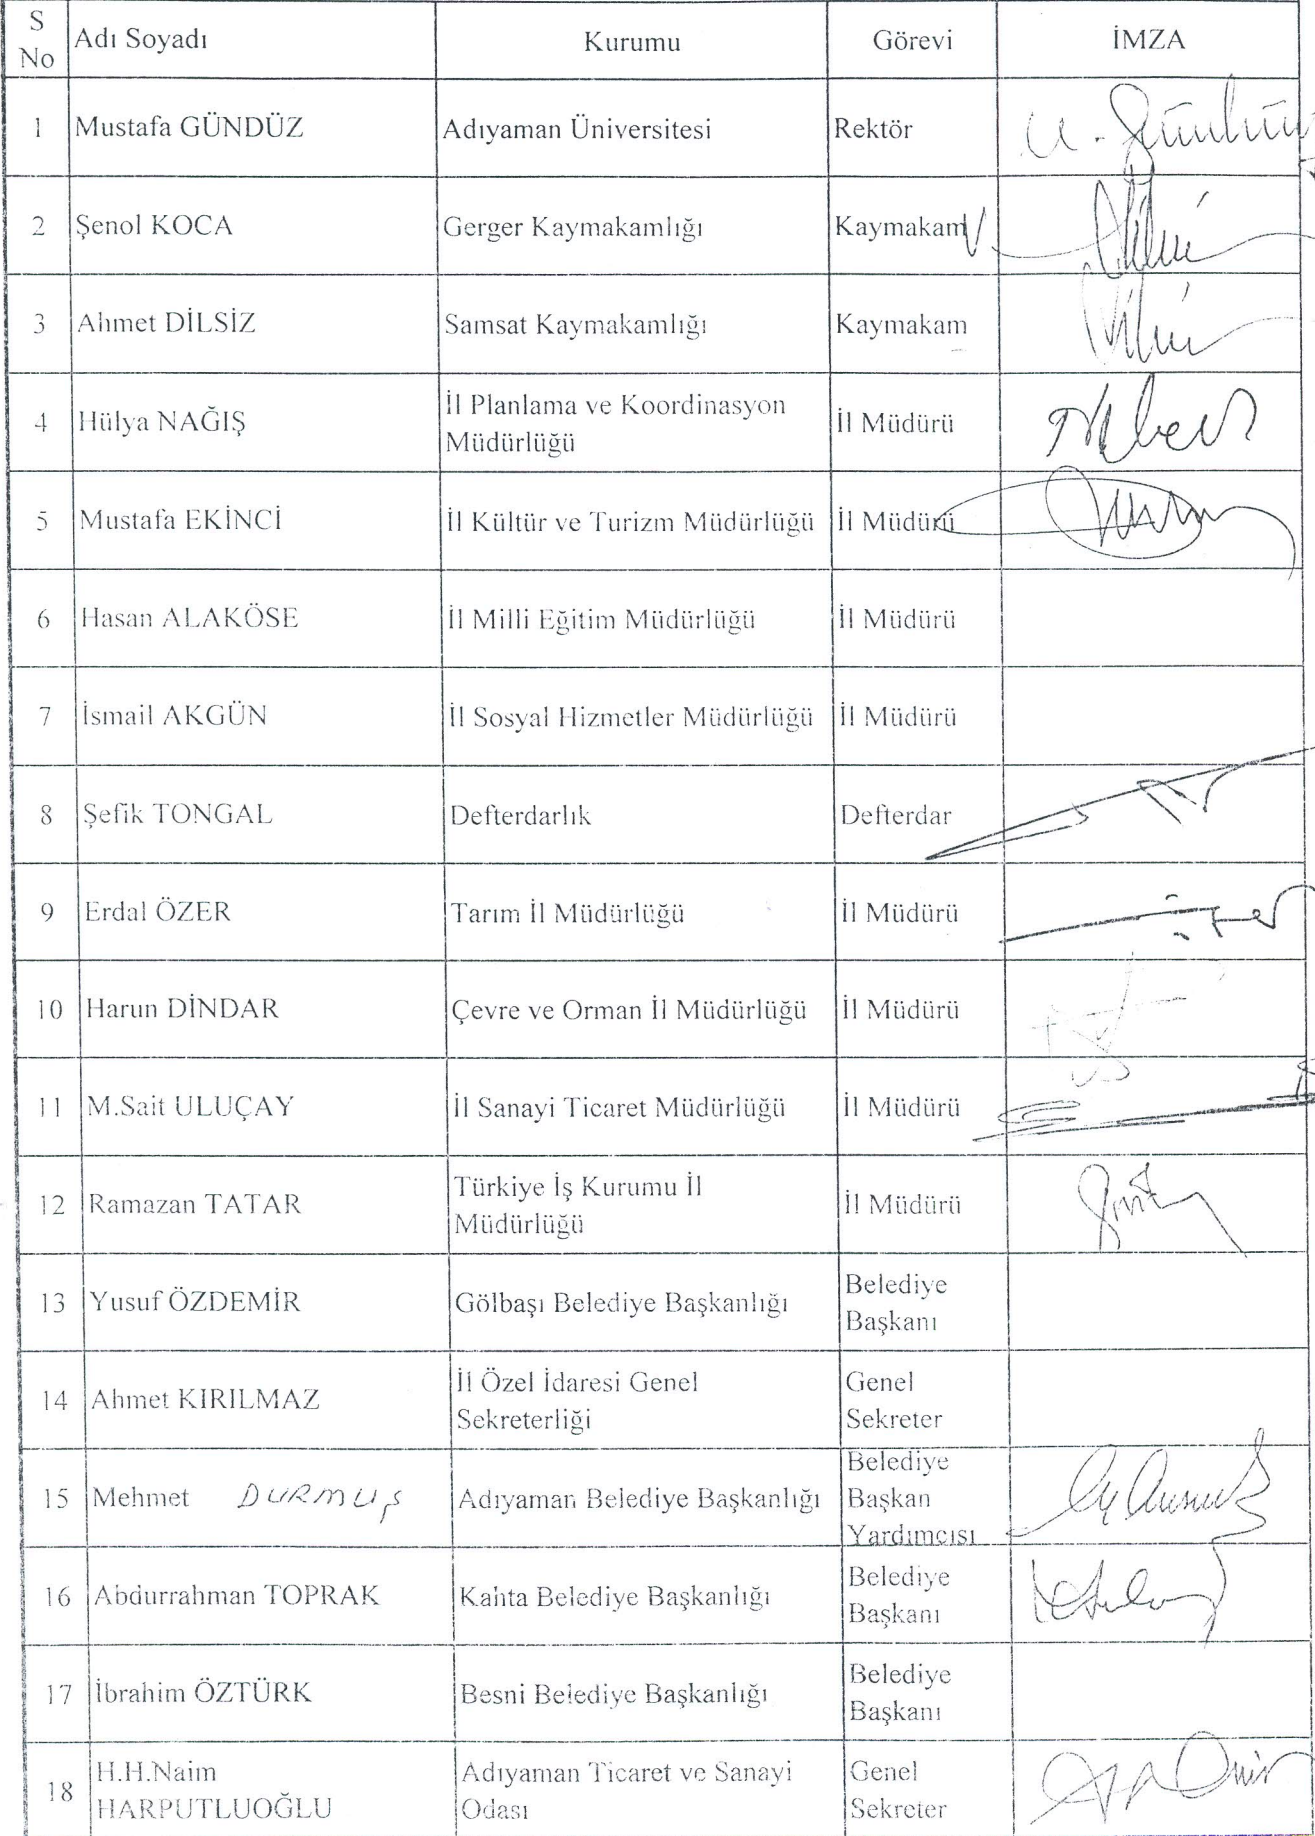 S No Adı Soyadı Kurumu Görevi İMZA
1 Mustafa GÜNDÜZ Adıyaman Üniversitesi Rektör
2 Şenol KOCA Gerger Kaymakamlığı Kaymakam V
3 Ahmet DİLSİZ Samsat Kaymakamlığı Kaymakam
4 Hülya NAĞIŞ İl Planlama ve Koordinasyon
Müdürlüğü İl Müdürü
5 Mustafa EKİNCİ İl Kültür ve Turizm Müdürlüğü İl Müdürü
6 Hasan ALAKÖSE İl Milli Eğitim Müdürlüğü İl Müdürü
7 İsmail AKGÜN İl Sosyal Hizmetler Müdürlüğü İl Müdürü
8 Şefik TONGAL Defterdarlık Defterdar
9 Erdal ÖZER Tarım İl Müdürlüğü İl Müdürü
10 Harun DİNDAR Çevre ve Orman İl Müdürlüğü İl Müdürü
11 M.Sait ULUÇAY İl Sanayi Ticaret Müdürlüğü İl Müdürü
12 Ramazan TATAR Türkiye İş Kurumu İl
Müdürlüğü İl Müdürü
13 Yusuf ÖZDEMİR Gölbaşı Belediye Başkanlığı Belediye
Başkanı
14 Ahmet KIRILMAZ İl Özel İdaresi Genel
Sekreterliği Genel
Sekreter
15 Mehmet DURMUŞ Adıyaman Belediye Başkanlığı Belediye
Başkan
Yardımcısı
16 Abdurrahman TOPRAK Kahta Belediye Başkanlığı Belediye
Başkanı
17 İbrahim ÖZTÜRK Besni Belediye Başkanlığı Belediye
Başkanı
18 H.H.Naim
HARPUTLUOĞLU Adıyaman Ticaret ve Sanayi
Odası Genel
Sekreter